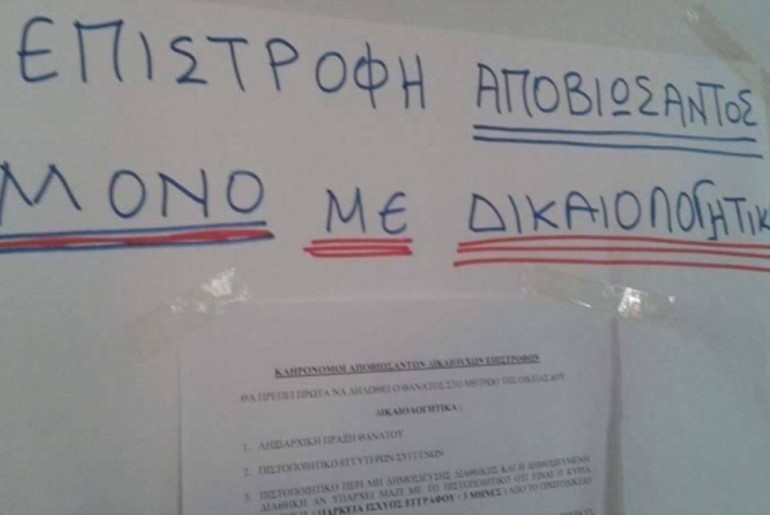 ΕΠΙΣΤΡΟΦΗ ΑΠΟΒΙΩΣΑΝΤΟΣ
ΜΟΝΟ ΜΕ ΔΙΚΑΙΟΛΟΓΗΤΙΚ
ΚΛΗΡΟΝΟΜΟΙ ΑΠΟΒΙΩΣΑΝΤΩΝ ΔΙΚΑΙΟΥΧΩΝ ΕΠΙΣΤΡΟΦΩΝ
ΘΑ ΠΡΕΠΕΙ ΠΡΩΤΑ ΝΑ ΔΗΛΩΘΕΙ Ο ΘΑΝΑΤΟΣ ΣΤΟ ΜΗΤΡΩΟ ΤΗΣ ΟΙΚΕΙΑΣ ΔΟΥ
ΔΙΚΑΙΟΛΟΓΗΤΙΚΑ :
1. ΛΗΞΙΑΡΧΙΚΗ ΠΡΑΞΗ ΘΑΝΑΤΟΥ
2. ΠΙΣΤΟΠΟΙΗΤΙΚΟ ΕΓΓΥΤΕΡΩΝ ΣΥΓΓΕΝΩΝ
3. ΠΙΣΤΟΠΟΙΗΤΙΚΟ ΠΕΡΙ ΜΗ ΔΗΜΟΣΙΕΥΣΗΣ ΔΙΑΘΗΚΗΣ ΚΑΙ Η ΔΗΜΟΣΙΕΥΜΕΝΗ
ΔΙΑΘΗΚΗ ΑΝ ΥΠΑΡΧΕΙ ΜΑΖΙ ΜΕ ΤΟ ΠΙΣΤΟΠΟΙΗΤΙΚΟ ΟΤΙ ΕΙΝΑΙ Η ΚΥΡΙΑ
ΔΙΑΡΚΕΙΑ ΙΣΧΥΟΣ ΕΓΓΡΑΦΟΥ : 3 ΜΗΝΕΣ ) ΑΠΟ ΤΟ ΠΡΩΤΟΔΙΚΕΙΟ